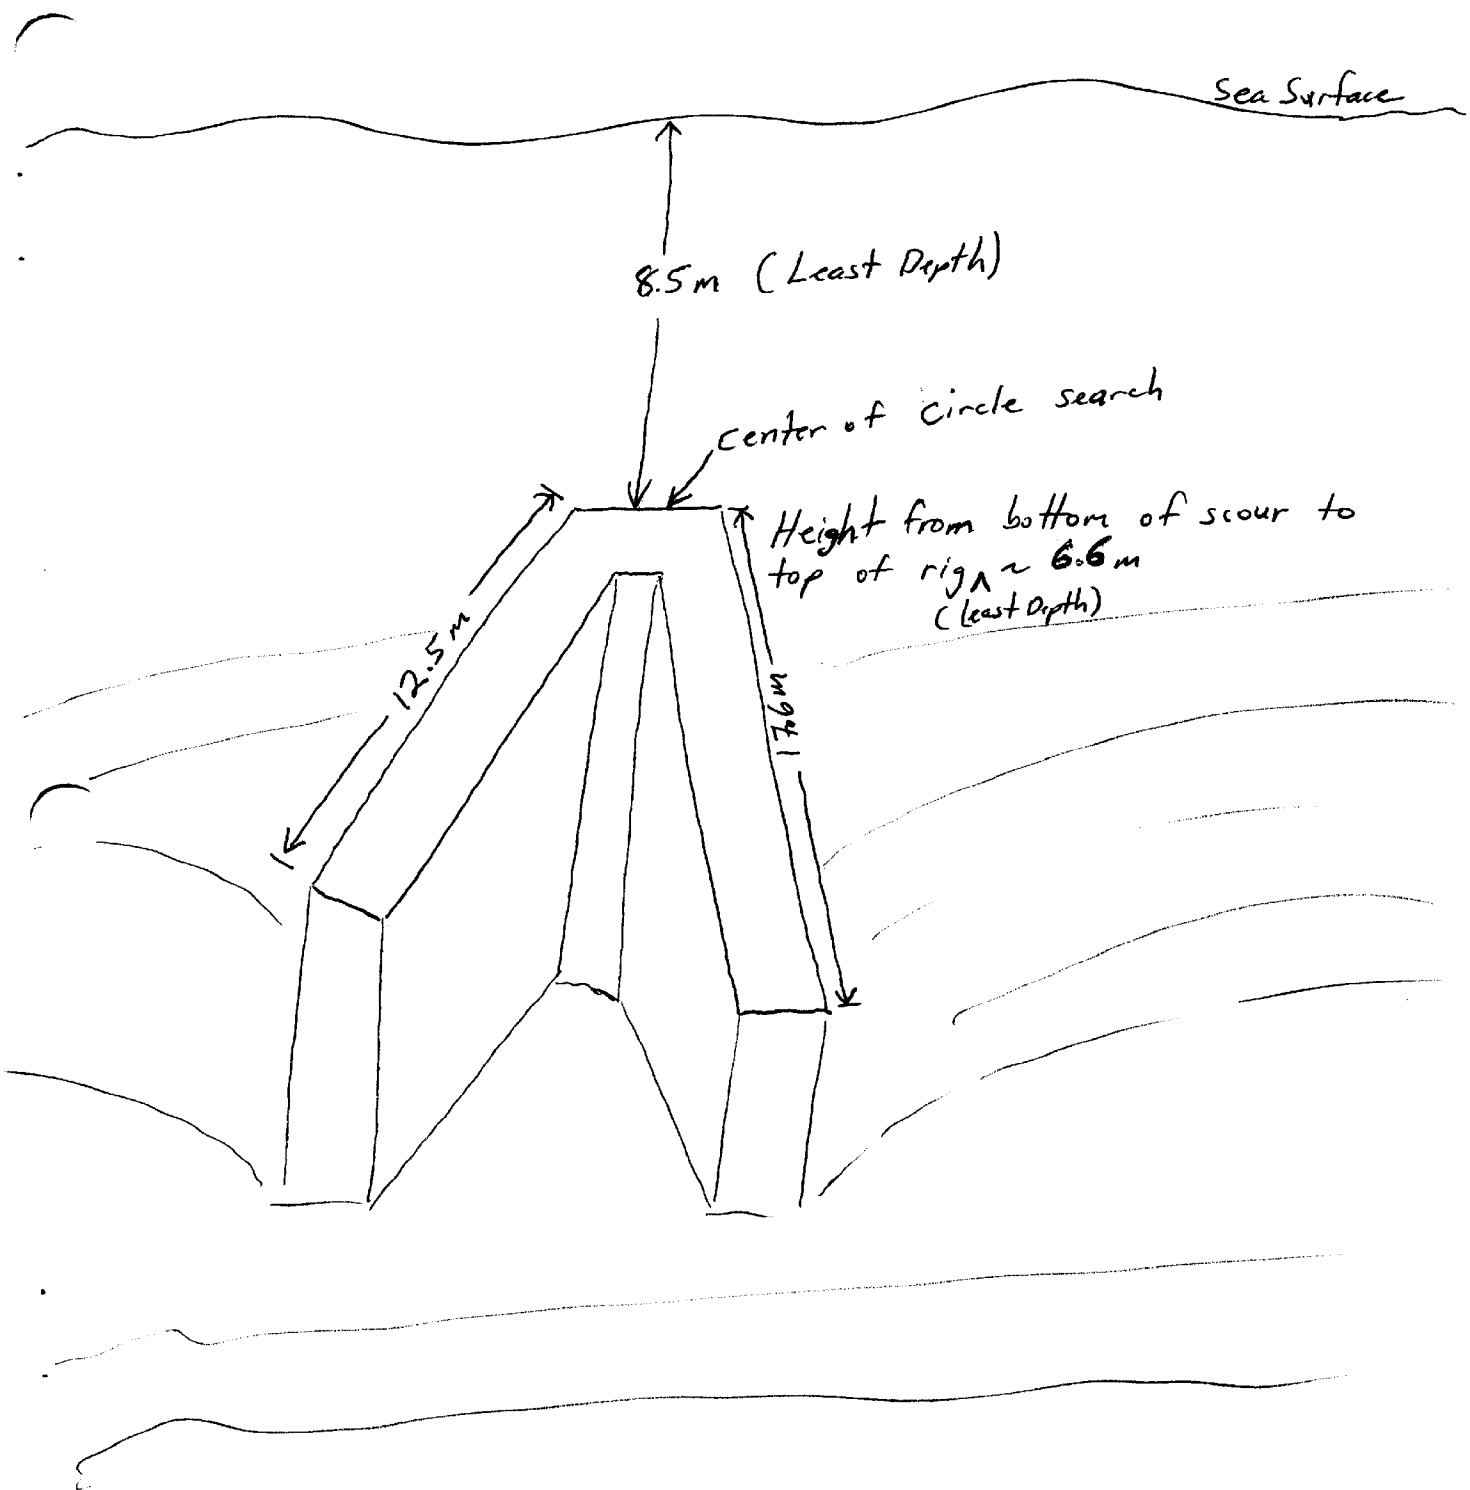 Sea Surface
8.5m (Least Depth)
center of circle search
Height from bottom of scour to
top of rig ^ ~ 6.6m
(Least Depth)
12.5m
17.6m